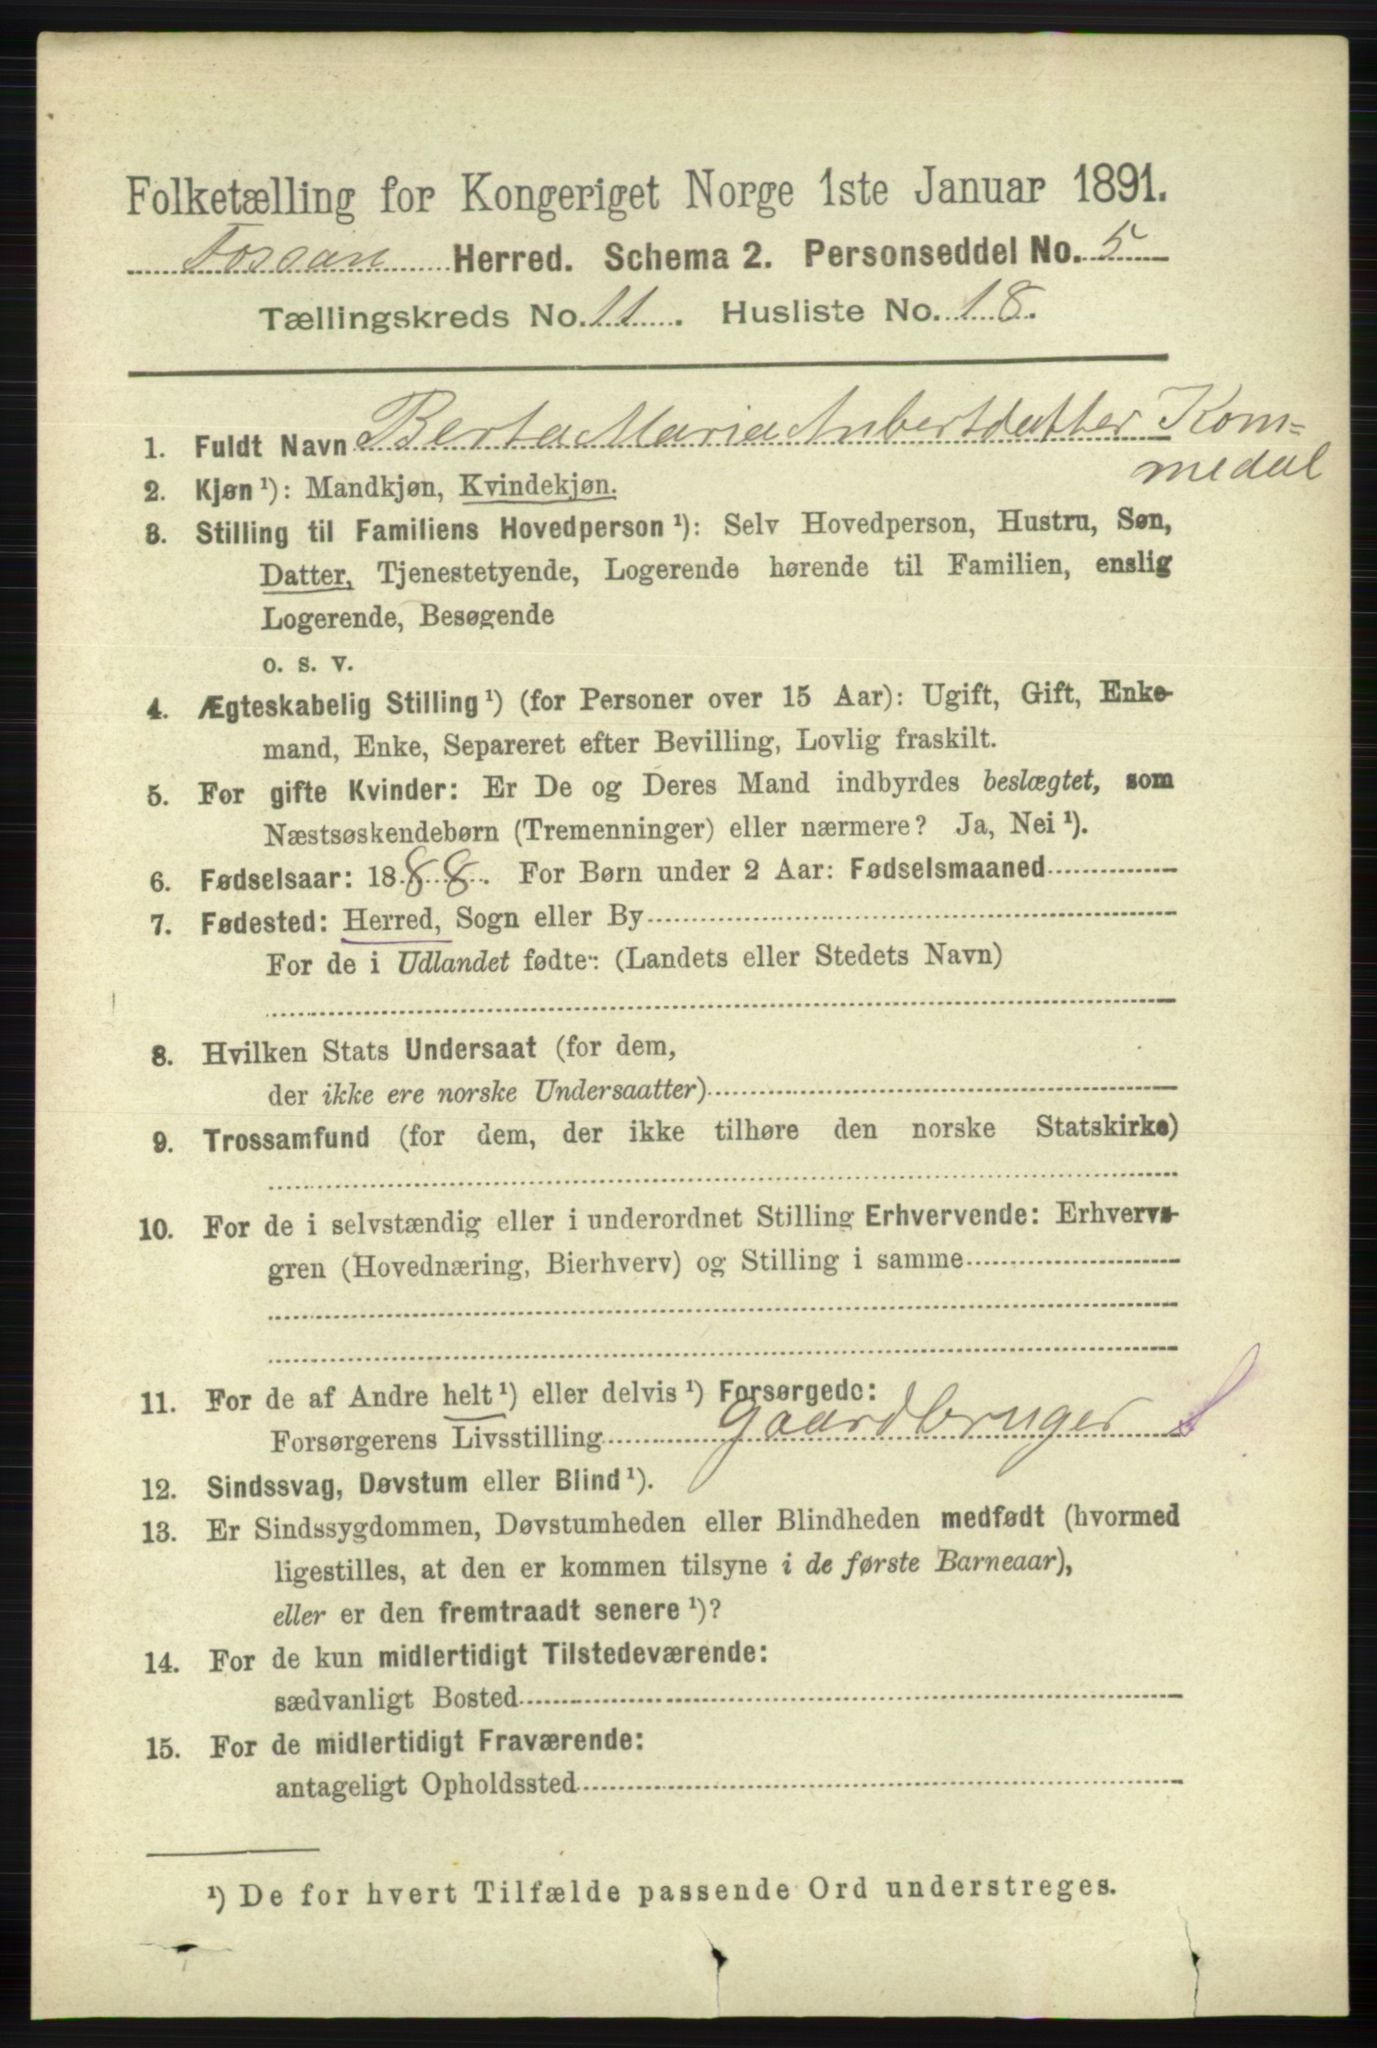 Folketælling for Kongeriget Norge 1ste Januar 1891.
Fossan Herred. Schema 2. Personseddel No. 5
Tællingskreds No. 11. Husliste No. 18.
1. Fuldt Navn Berta Maria Anbertsdatter Kom=
medal
2. Kjøn ¹): Mandkjøn, Kvindekjøn.
3. Stilling til Familiens Hovedperson ¹): Selv Hovedperson, Hustru, Søn,
Datter, Tjenestetyende, Logerende hørende til Familien, enslig
Logerende, Besøgende
o. s. v.
4. Ægteskabelig Stilling ¹) (for Personer over 15 Aar): Ugift, Gift, Enke-
mand, Enke, Separeret efter Bevilling, Lovlig fraskilt.
5. For gifte Kvinder: Er De og Deres Mand indbyrdes beslægtet, som
Næstsøskendebørn (Tremenninger) eller nærmere? Ja, Nei ¹).
6. Fødselsaar: 1888. For Børn under 2 Aar: Fødselsmaaned
7. Fødested: Herred, Sogn eller By
For de i Udlandet fødte: (Landets eller Stedets Navn)
8. Hvilken Stats Undersaat (for dem,
der ikke ere norske Undersaatter)
9. Trossamfund (for dem, der ikke tilhøre den norske Statskirke)
10. For de i selvstændig eller i underordnet Stilling Erhvervende: Erhvervs-
gren (Hovednæring, Bierhverv) og Stilling i samme
11. For de af Andre helt ¹) eller delvis ¹) Forsørgede:
Forsørgerens Livsstilling Gaardbruger S
12. Sindssvag, Døvstum eller Blind ¹).
13. Er Sindssygdommen, Døvstumheden eller Blindheden medfødt (hvormed
ligestilles, at den er kommen tilsyne i de første Barneaar),
eller er den fremtraadt senere ¹)?
14. For de kun midlertidigt Tilstedeværende:
sædvanligt Bosted
15. For de midlertidigt Fraværende:
antageligt Opholdssted
¹) De for hvert Tilfælde passende Ord understreges.